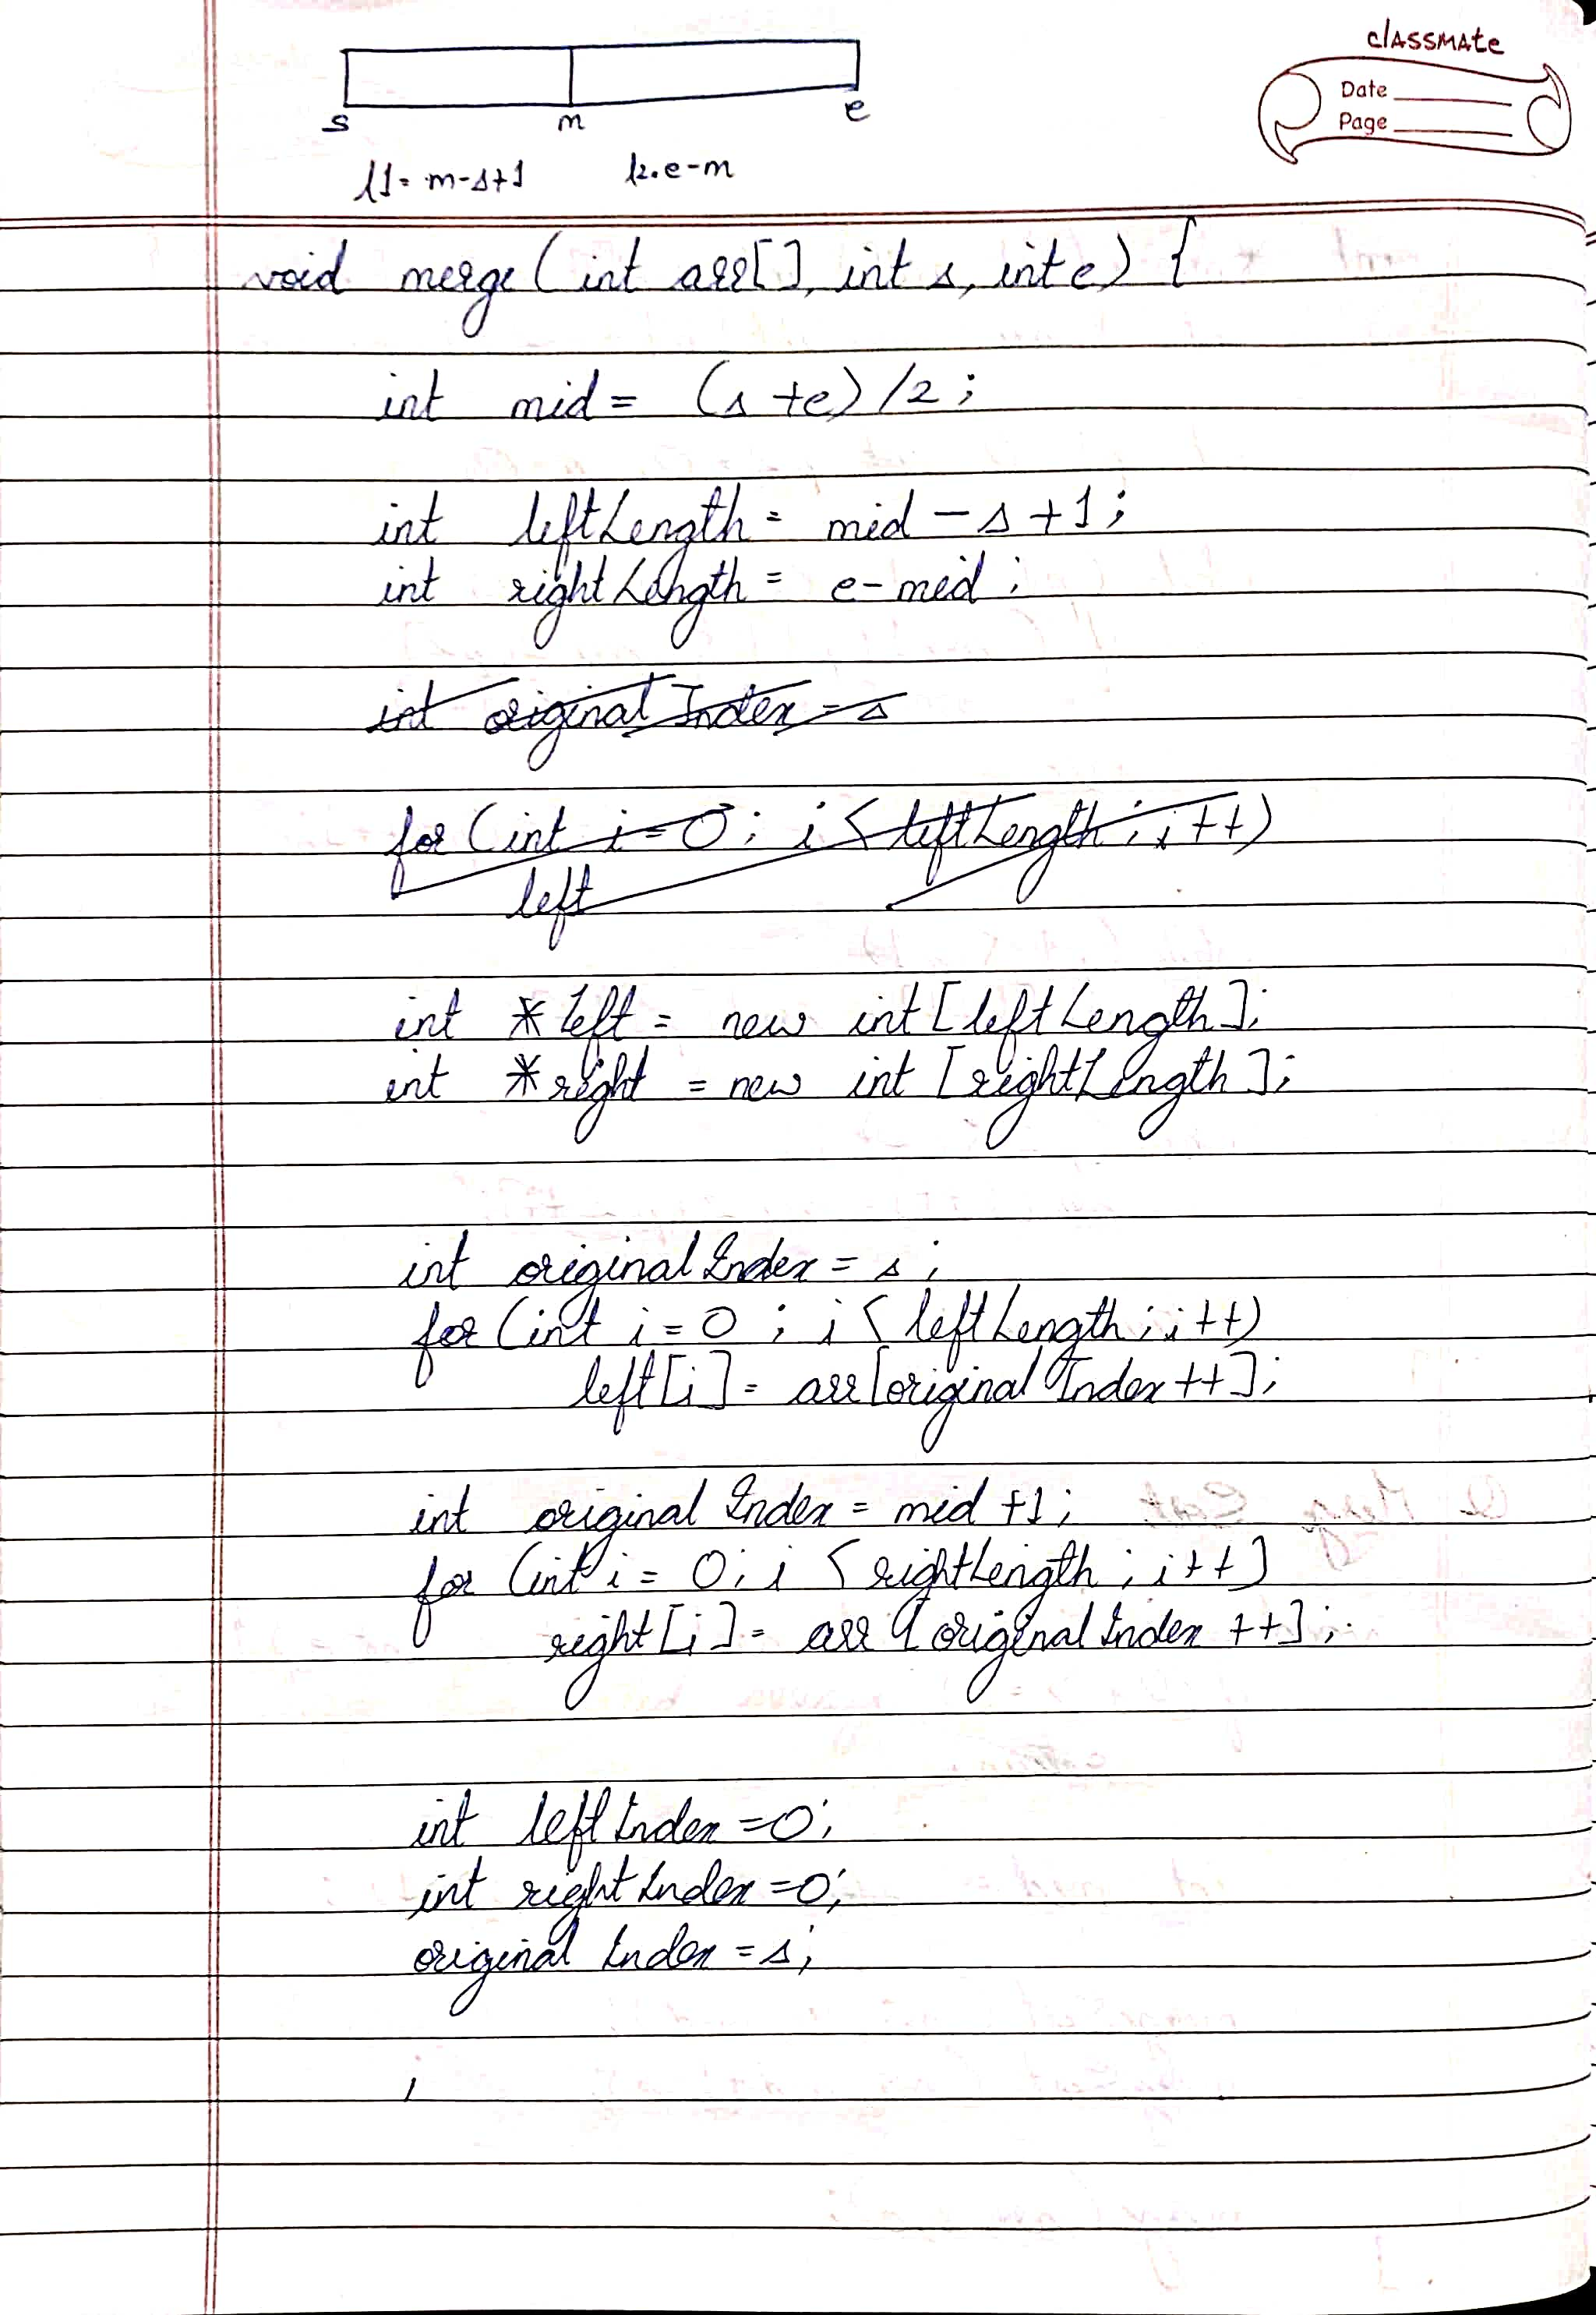 classmate
Date
Page
s m e
l1= m-s+1 l2.e-m
void merge(int arr[], int s, int e) {
int mid = (s+e)/2;
int leftLength = mid-s+1;
int rightLength = e-mid;
int originalIndex = s
for (int i=0; i<leftLength; i++)
left
int *left = new int[leftLength];
int *right = new int[rightLength];
int originalIndex = s;
for (int i=0; i<leftLength; i++)
left[i] = arr[originalIndex++];
int originalIndex = mid+1;
for (int i=0; i<rightLength; i++]
right[i] = arr[originalIndex++];
int leftIndex=0;
int rightIndex=0;
originalIndex=s;